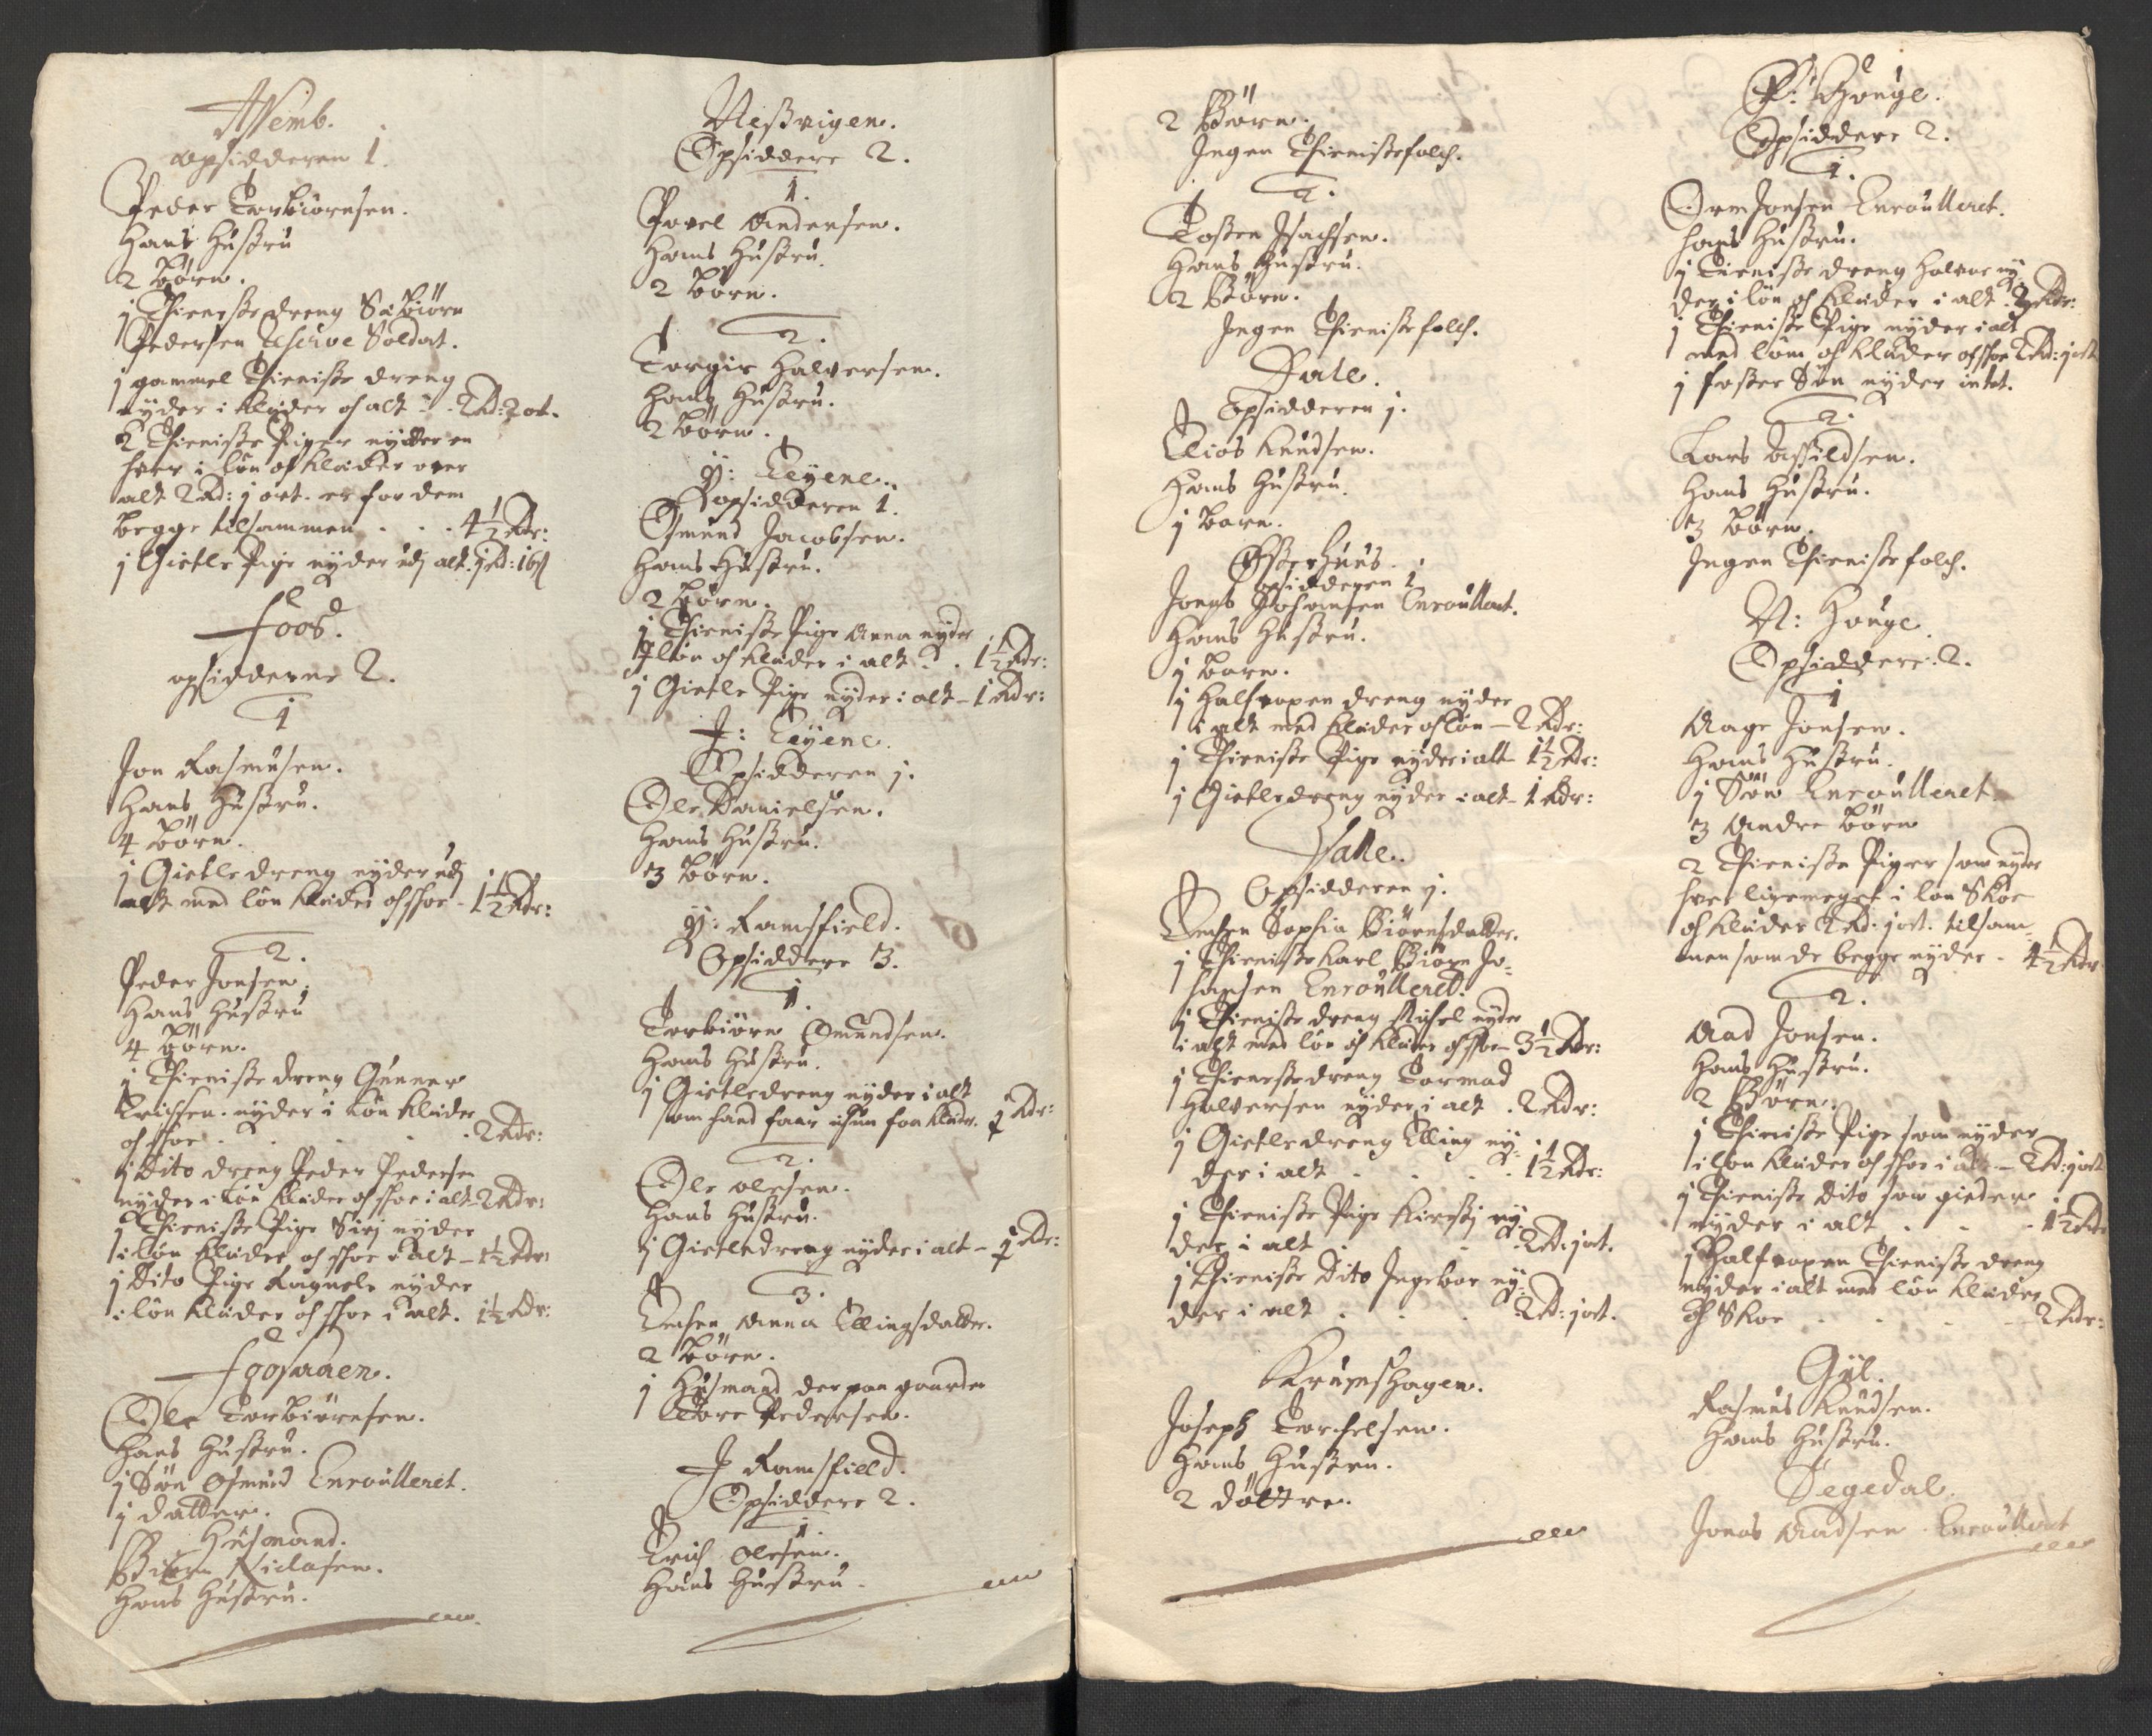 Nemb.
opsidderen 1.
Peder Torbiörnsen.
Hans Hustru
2 börn.
j Thieniste dreng Sibiörn
Pedersen Reserve Soldat.
j gammel Thieniste dreng
nyder i Klæder och alt - 2 Rd: 2 ort.
2 Thieniste Piger nyder en
hver i lön och klæder over
alt 2 Rd: j ort. er for dem
begge tilsammen . . . 4½ Rdr:
j Gietle Pige nyder udj alt. j Rd: 16 s
Foos.
opsidderne 2.
1
Jon Rasmusen.
Hans Hustru.
4 börn.
j Gietle dreng nyder udj
alt med lön klæder och skoe - 1½ Rdr:
2.
Peder Jonsen.
Hans Hustru
4 börn.
j Thieniste dreng Gunner
nyder i lön klæder
och skoe . . . 2 Rdr:
j Dito dreng Peder Pedersen
nyder i lön klæder och skoe i alt - 2 Rdr:
j Thieniste Pige Sirj nyder
i lön klæder och skoe i alt - 1½ Rdr:
j Dito Pige Ragnele nyder
i lön klæder och skoe i alt. 1½ Rdr:
Foosaaen.
Ole Torbiörnsen.
Hans Hustru.
j Sön Osmund Enroulleret.
j datter.
Husmand.
Biörn Niclasen.
Hans Hustru.
Nessvigen.
Opsiddere 2.
1.
Povel Andersen.
Hans Hustru.
2 börn.
2.
Torgir Halversen.
Hans Hustru.
2 börn.
Y: Eeyene.
opsidderen 1.
Osmund Jacobsen.
Hans Hustru.
2 börn.
j Thieniste Pige Anna nyder
i lön och klæder i alt . . 1½ Rdr:
j Gietle Pige nyder i alt - 1 Rdr:
J: Eeyene.
Opsidderen j.
Ole Danielsen.
Hans Hustru.
3 börn.
Y: Ramsfield.
Opsiddere 3.
1.
Torbiörn Omundsen.
Hans Hustru.
j Gietledreng nyder i alt
som hand faar klæder. j Rdr:
2.
Ole olesen.
Hans Hustru.
j Gietledreng nyder i alt - j Rdr:
3.
Encken Anna Ellingsdatter.
2 börn.
j Husmand der paa gaarden
Tore Pedersen.
J Ramsfield.
Opsiddere 2.
1.
Erich olesen.
Hans Hustru.
2 Börn.
Ingen Thienistefolch.
2.
Tosten Isachsen.
Hans Hustru.
2 Börn.
Ingen Thienistefolch.
Dale.
Opsidderen j.
Elias Knudsen.
Hans Hustru.
j barn.
Østerhuus.
opsidderen 1
Jonas Johansen Enroulleret.
Hans Hustru.
j barn.
j Halfvoxen dreng nyder
i alt med klæder och lön - 2 Rdr:
j Thieniste Pige nyder i alt - 1½ Rdr:
j Gietledreng nyder i alt - 1 Rdr:
Valle.
Opsidderen j.
Encken Sophia Biörnsdatter.
j Thieniste karl Biörn Jo-
hansen Enroulleret.
j Thieniste dreng Michel nyder
i alt med lön och klæder och skoe - 3½ Rdr:
j Thieneste dreng Tormod
Halversen nyder i alt . 2 Rdr:
j Gietledreng Elling ny-
der i alt . . . 1½ Rdr:
j Thieniste Pige Kirstj ny-
der i alt . . . 2 Rd: j ort.
j Thieniste Dito Ingebor ny-
der i alt . . . 2 Rd: j ort.
Krumshagen.
Joseph Torchelsen.
Hans Hustru.
2 döttre.
Y: Houge.
Opsiddere 2.
1.
Orm Jonsen Enroulleret.
hans Hustru.
j Tieniste dreng Halvor ny-
der i lön och klæder i alt 2 Rdr:
j Thieniste Pige nyder i alt
med lön och klæder och skoe 2 Rd: j ort
j foster Sön nyder intet.
2.
Lars Assildsen.
Hans Hustru.
3 börn.
Ingen Thienistefolch.
N: Houge.
Opsiddere 2.
1
Aage Jonsen.
Hans Hustru.
j Sön Enroulleret
3 Andre börn
2 Thieniste Piger som nyder
hver ligemeget i lön Skoe
och klæder 2 Rd: j ort. tilsam-
men som de begge nyder - 4½ Rdr
2.
Aad Jonsen.
Hans Hustru.
2 Börn.
j Thieniste Pige som nyder
i lön klæder och skoe i alt - 2 Rd: j ort
j Thieniste Dito som gieder
nyder i alt . . . 1½ Rdr
j Halfvoxen Thieniste dreng
nyder i alt med lön klæder
och Skoe . . . 2 Rdr:
Gyl.
Rasmus Knudsen.
Hans Hustru.
Segedal.
Jonas Aadsen. Enroulleret